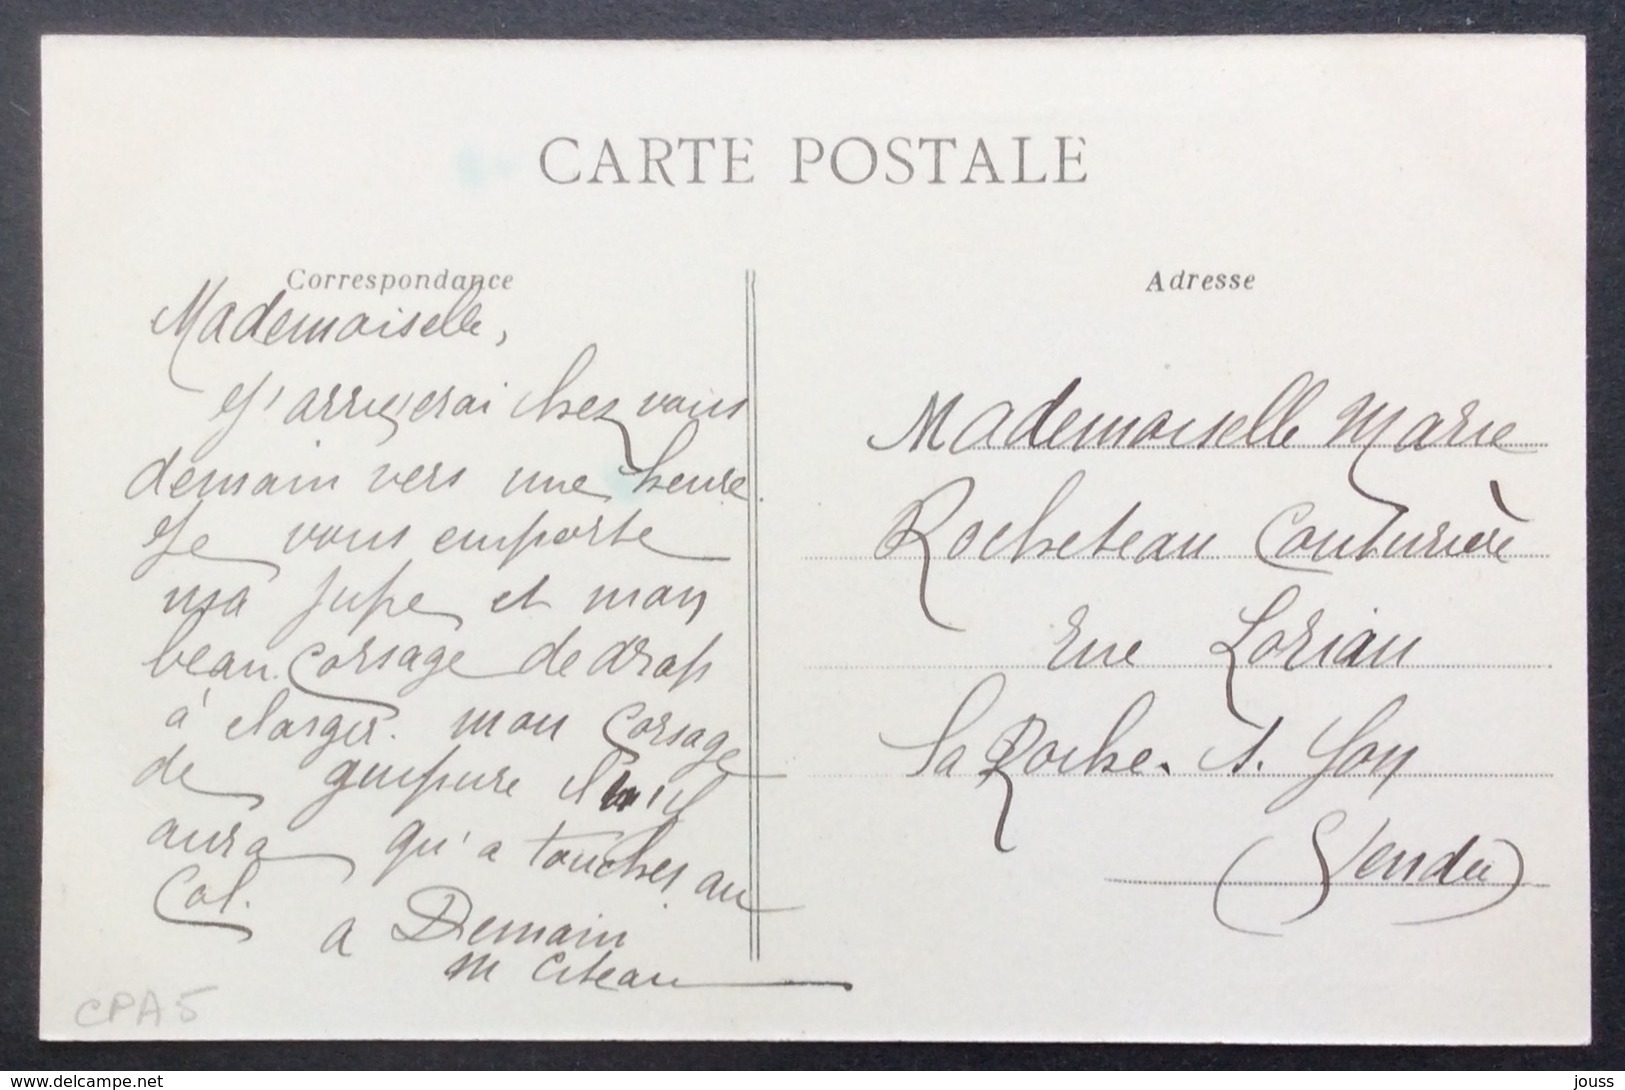 CARTE POSTALE
Correspondance
Mademoiselle,
J'arriverai chez vous
demain vers une heure.
Je vous emporte
ma jupe et mon
beau corsage de drap
à élargir. mon corsage
de guipure il n'y
aura qu'a toucher au
Col.
a Demain
M Citeau
Adresse
Mademoiselle Marie
Rocheteau Couturière
rue Lorian
La Roche. s. Yon
(Vendée)
CPA5
https://www.delcampe.net
jouss